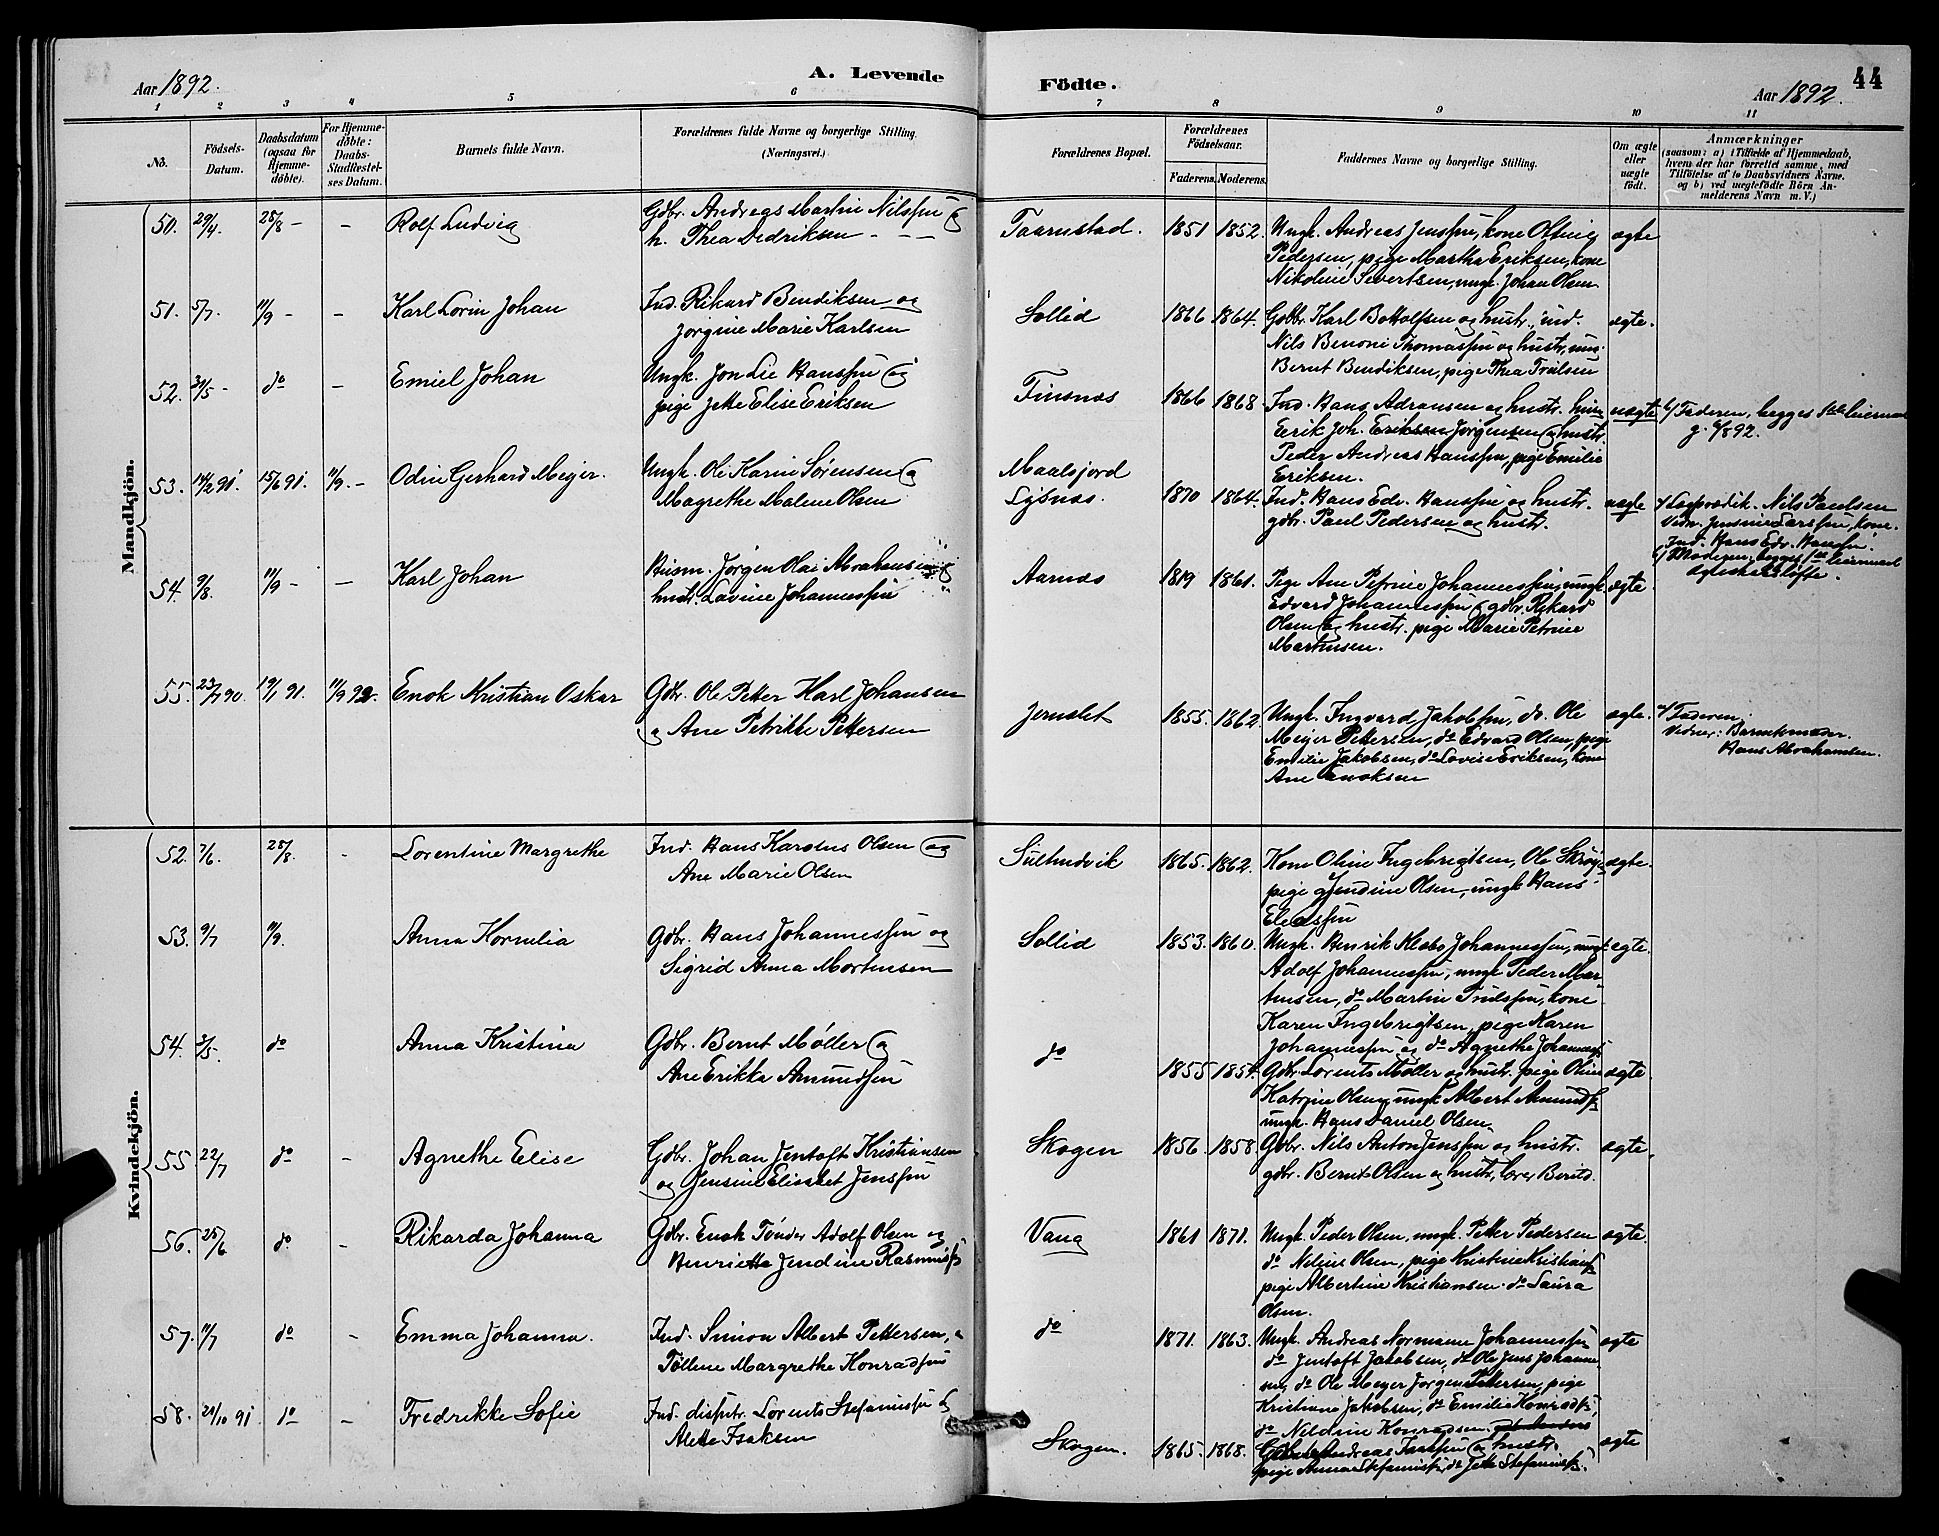 Aar 1892.
A. Levende
Födte.
Aar 1892.
44
1 2 3 4 5 6 7 8 9 10 11
No.
Födsels-Datum.
Daabsdatum (ogsaa for Hjemme-döbte).
For Hjemme-döbte: Daabs-Stadfæstel-ses Datum.
Barnets fulde Navn.
Forældrenes fulde Navne og borgerlige Stilling.
(Næringsvei.)
Forældrenes Bopæl.
Forældrenes Födselsaar.
Faderens. Moderens.
Faddernes Navne og borgerlige Stilling.
Om ægte eller uægte födt.
Anmærkninger
(saasom: a) i Tilfælde af Hjemmedaab,
hvem der har forrettet samme, med
Tilföielse af to Daabsvidners Navne,
og b) ved uægtefödte Börn An-
melderens Navn m. V.)
Mandkjön.
50. 29/4. 28/8 - - Rolf Ludvig
Gdbr. Andreas Martin Nilssen og
h. Thea Dedriksen - - -
Taarnstad. 1851 1852.
Ungk. Andreas Jenssen, kone
Pedersen, pige Martha Eriksen, kone
Nikoline Sivertsen, ungk. Johan Olsen
ægte
51. 5/7. 11/9 - - Karl Lorin Johan
Ind. Rikard Bendiksen og
Jørgine Marie Karlsen
Sollid 1866 1864.
Gdbr. Karl Bottolfsen og hustr., ind.
Nils Benoni Thomassen og hustr, ung.
Bernt Bendiksen, pige Thea
ægte.
52. 31/5 - do - Emiel Johan
Ungk. Jon Lie Hanssen og
pige Jette Elise Eriksen
Finsnæs 1866 1868
Ind. Hans Adransen og hustr.
Eerik Joh. Jørgensen og hustr.
Peder Andreas Hanssen, pige Emilie
Eriksen.
uægte
b) Faderen, begges 1ste leiermaal
53. 14/2 91. 15/6 91. 11/9. - Odin Gerhard Meyer.
Ungk. Ole Karin Sørensen og
Magrethe Malene Olsen
Maalsjord
Lysnæs. 1870 1864.
Ind. Hans Edv. Hanssen og hustr.
gdbr. Paul Pedersen og hustr.
uægte
Nils Paulsen
kone.
Ind. Hans Edv. Hanssen.
b) Moderen, begges 1ste leiermaal
54. 9/8. 11/9 - - Karl Johan
Husm. Jørgen Olai Abrahamsen og
hustr. Lavine Johannessen
Aarnæs 1819 1861.
Pige Ane Petrine Johannessen, ungk.
Edvard Johannessen, gdbr. Rikard
Olsen og hustr. pige Marie Petrine
Martinsen.
ægte
55. 23/7 90. 19/1 91. 11/9 92. Enok Kristian Oskar
Gdbr. Ole Petter Karl Johansen
og Ane Petrikke Pettersen
1855. 1862
Ungk. Ingvard Jakobsen, do. Ole
Meyer Pettersen, do Edvard Olsen, pige
Emilie Jakobsen, do Lovise Eriksen, kone
Ane Enoksen
ægte.
a) Faderen.
Vidner: Barnets moder.
Hans Abrahamsen.
Kvindekjön.
52. 7/6. 28/8. - Lorentine Margrethe
Ind. Hans Karolus Olsen og
Ane Marie Olsen
Sultindvik 1865. 1862.
Kone Oline Ingebrigtsen, Ole
pige Gjendine Olsen, ungk Hans
Eleassen
ægte.
53. 9/7 11/9. Anna Kornelia
Gdbr. Hans Johannessen og
Sigrid Anna Mortensen
Sollid 1853. 1860.
Ungk. Henrik Klæbo Johannessen, ungk.
Adolf Johannessen, ungk Peder Mar-
tinsen, do Martin, kone
Karen Ingebrigtsen, pige Karen
Johannessen og do Agnethe Johanness.
ægte.
54. 3/5. do Anna Kristina
Gdbr. Bernt Møller og
Ane Erikka Amundsen
do 1855 1854.
Gdbr. Lorents Møller og hustr. pige Oline
Katrine Olsen, ungk Albert Amunds.
ungk. Hans Daniel Olsen.
ægte
55 22/7 do - Agnethe Elise
Gdbr. Johan Jentoft Kristiansen
og Jensine Elisabet Jenssen
Skogen 1856. 1858.
Gdbr. Nils Anton Jenssen og hustr.
gdbr. Bernt Olsen og hustr,
ægte.
56. 25/6 do. - Rikarda Johanna
Gdbr. Enok Tønder Adolf Olsen og
Henriette Jendine Rasmuss.
Vang 1861 1871.
Ungk. Peder Olsen, ungk. Petter Pedersen
do Nelius Olsen, pige Kristine Kristians.
pige Albertine Kristiansen. do Laura
Olsen.
ægte.
57. 11/7 do - Emma Johanna.
Ind. Simon Albert Pettersen, o
Tølline Margrethe Konradsen
do 1871. 1863.
Ungk. Andreas Normann Johannessen
do Jentoft Jakobsen, do Ole Jens Johanne
sen, do Ole Meyer Jørgen Pettersen, pige
Kristiane Jakobsen, do Emilie Konrads.
do Neldine Konradsen.
ægte
58. 21/10 91 do - Fredrikke Sofie
Ind. disputr. Lorents Stefanussen og
Alette Isaksen
Skogen. 1865. 1868.
Andreas og hustr.
pige Anna Stefanuss. do Jette Stefanuss.
ægte